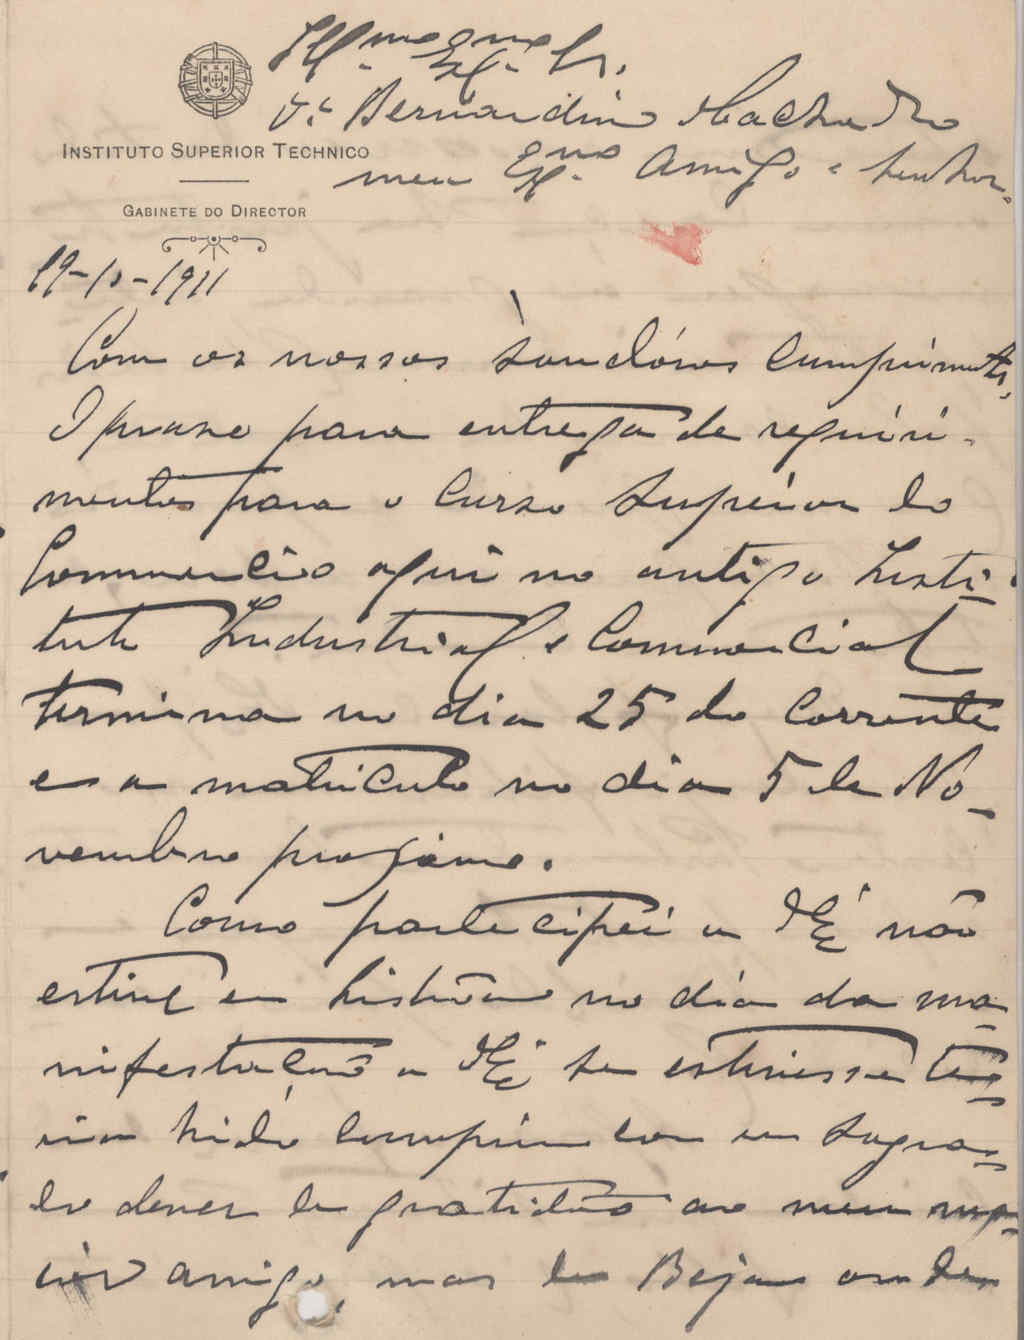 Illmo e Exmo Sr.
Dr. Bernardino Machado
INSTITUTO SUPERIOR TECHNICO
meu Exmo Amigo e Senhor.
GABINETE DO DIRECTOR
19-10-1911
Com os nossos cumprimentos.
O praso para entrega de requiri-
mentos para o Curso Superior do
Commercio aqui no antigo Insti-
tuto Industrial e Commercial
termina no dia 25 do Corrente
e a matricula no dia 5 de No-
vembro proximo.
Como participei a VExª não
estive em Lisbôa no dia da ma-
nifestação a VExª se estivesse te-
ria hido cumprir com um sagra-
do dever de gratidão ao meu
amigo, mas de Beja onde